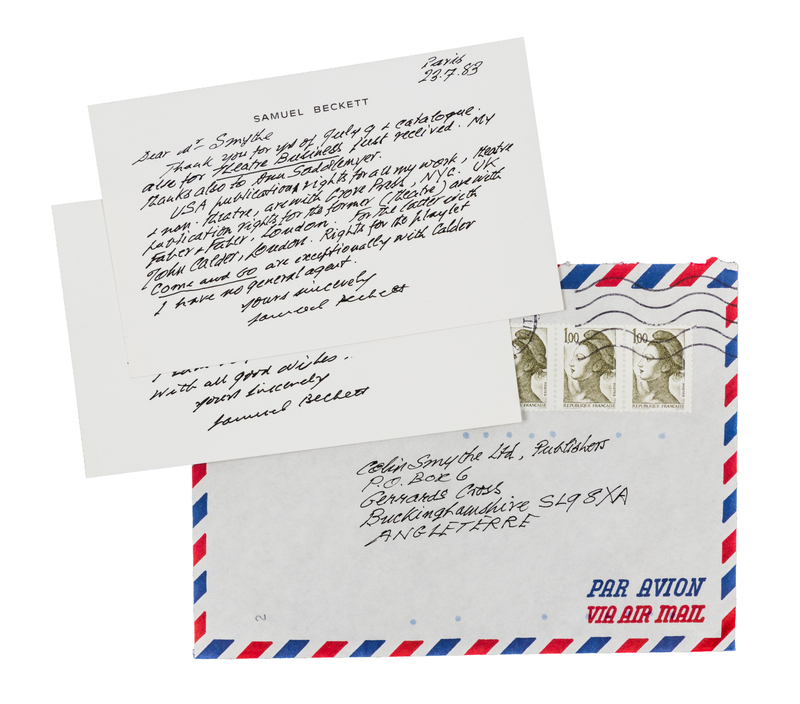 Paris
23.7.83
SAMUEL BECKETT
Dear Mr Smythe
Thank you for yrs of July 9 & catalogue.
also for Theatre Business just received. My
thanks also to Ann Saddlemyer.
USA publication rights for all my work, theatre
& non. theatre, are with Grove Press, NYC. UK
publication rights for the former (theatre) are with
Faber & Faber, London. For the latter with
John Calder, London. Rights for the playlet
Come and Go are exceptionally with Calder
I have no general agent.
Yours sincerely
Samuel Beckett
With all good wishes.
Yours sincerely
Samuel Beckett
1,00
1,00
REPUBLIQUE FRANÇAISE
REPUBLIQUE FRANÇAISE
Colin Smythe Ltd, Publishers
P.O. Box 6
Gerrards Cross
Buckinghamshire SL9 8XA
ANGLETERRE
PAR AVION
VIA AIR MAIL
2